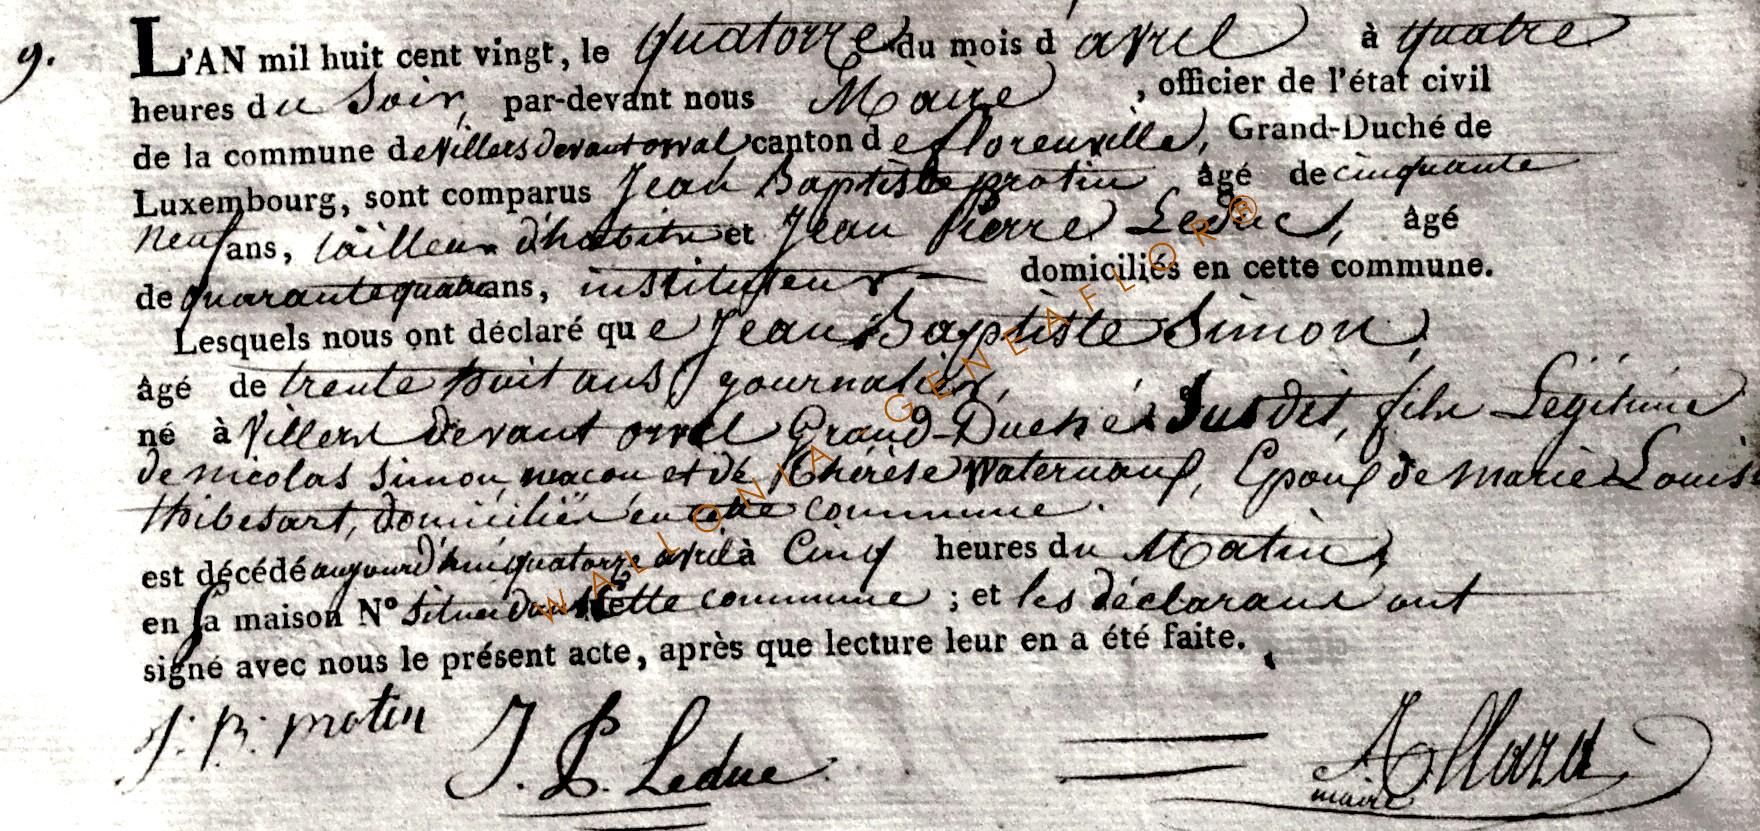 9.
L'AN mil huit cent vingt, le quatorze du mois d'avril à quatre
heures du soir, par-devant nous Maire, officier de l'état civil
de la commune de Villers devant orval canton de florenville, Grand-Duché de
Luxembourg, sont comparus Jean Baptiste protin âgé de cinquante
neuf ans, tailleur d'habits et Jean Pierre Leduc, âgé
de quarante quatre ans, instituteur domiciliés en cette commune.
Lesquels nous ont déclaré que Jean Baptiste Simon,
âgé de trente huit ans, journalier,
né à Villers devant orval Grand-Duché Susdit, fils Légitime
de nicolas Simon, macon et de Thérèse Waternaux, Epoux de marie Louise
thibesart, domiciliés en cette commune.
est décédé aujourd'hui quatorze avril à Cinq heures du Matin,
en sa maison N° située dans Cette commune ; et les déclarans ont
signé avec nous le présent acte, après que lecture leur en a été faite.
J. B. protin J. P. Leduc Allard
maire
WALLONIA GENEAFLOR®